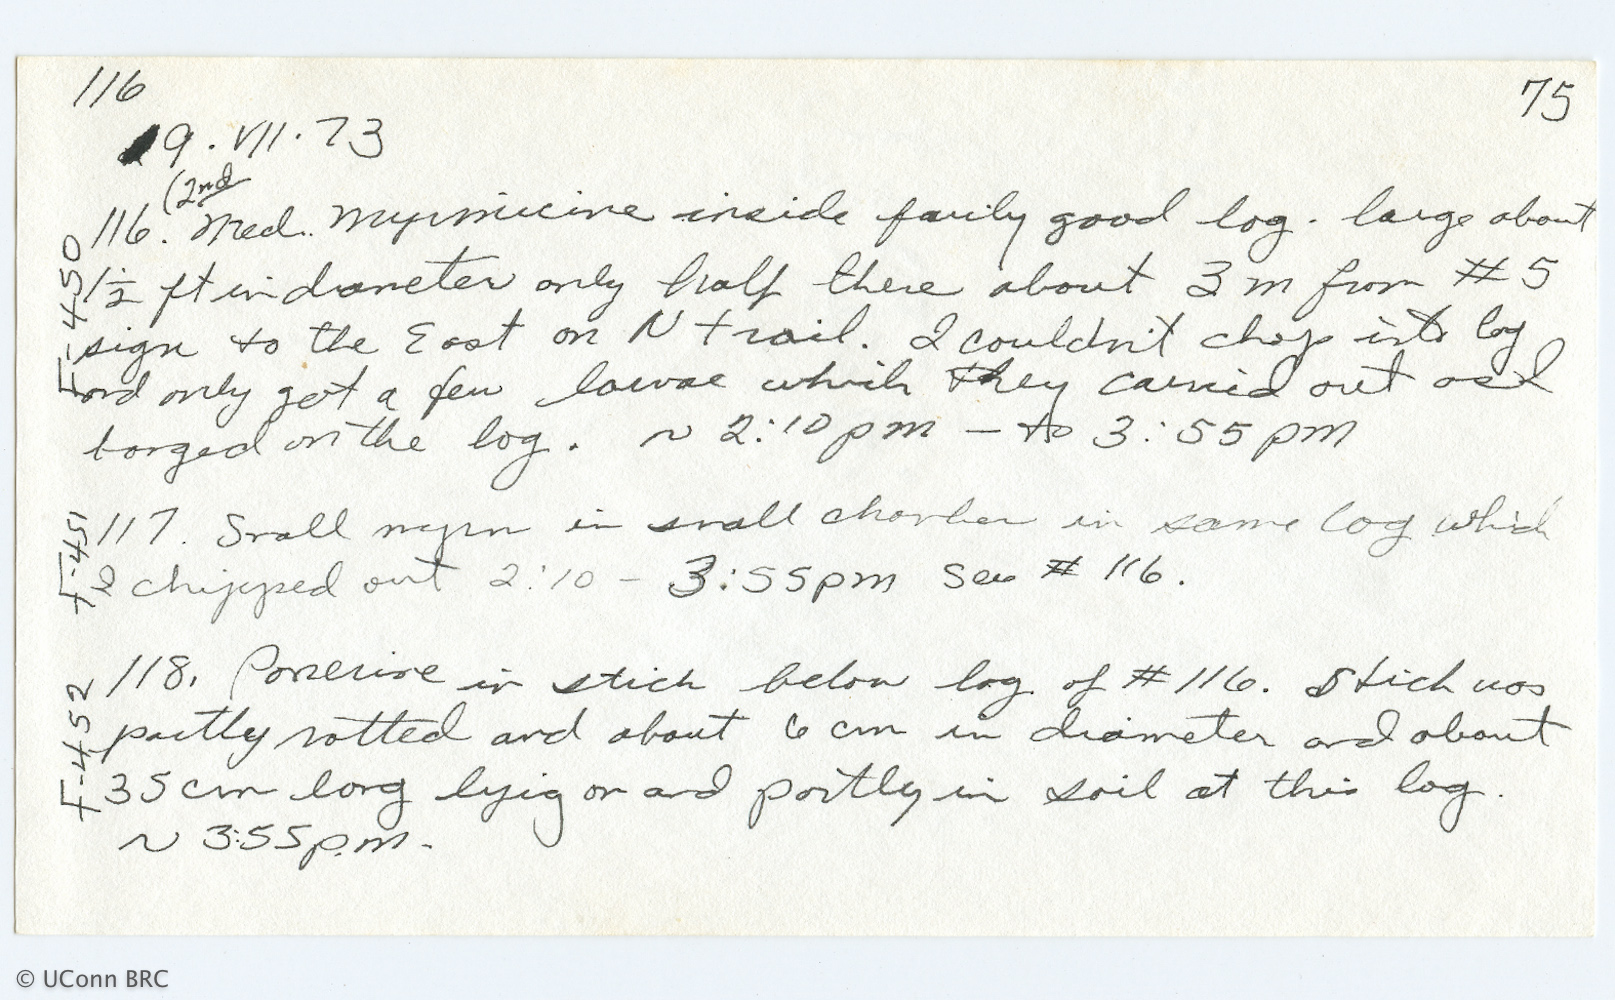 116
75
9.VII.73
(2nd
F-450
116. Med. Myrmicine inside fairly good log. large about
1½ ft in diameter only half there about 3 m from #5
sign to the East on N trail. I couldn't chop into log
and only got a few larvae which they carried out as I
banged on the log. ~ 2:10 pm – to 3:55 pm
F-451
117. Small myrm in small chamber in same log which
I chipped out 2:10 – 3:55pm See # 116.
F-452
118. Ponerine in stick below log of #116. Stick was
partly rotted and about 6 cm in diameter and about
35 cm long lying on and partly in soil at this log.
~ 3:55 p.m.
© UConn BRC